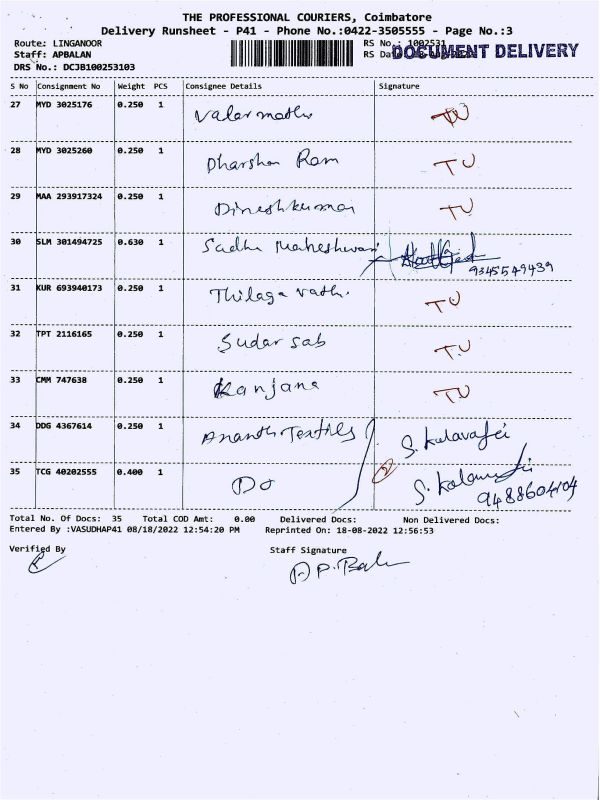 THE PROFESSIONAL COURIERS, Coimbatore
Delivery Runsheet - P41 - Phone No.:0422-3505555 - Page No.:3
Route: LINGANOOR RS No.: 1002531
Staff: APBALAN RS Da DOCUMENT DELIVERY
DRS No.: DCJB100253103
S No Consignment No Weight PCS Consignee Details Signature
27 MYD 3025176 0.250 1 Valarmathi TU
28 MYD 3025260 0.250 1 Dharshan Ram TU
29 MAA 293917324 0.250 1 Dineshkumar TU
30 SLM 301494725 0.630 1 Sadhu Maheshwari
9345549439
31 KUR 693940173 0.250 1 Thilagavathi. TU
32 TPT 2116165 0.250 1 Sudar sab T.U
33 CMM 747638 0.250 1 Ranjana TU
34 DDG 4367614 0.250 1 Ananth Textiles
35 TCG 40202555 0.400 1 Do 2
9488604104
Total No. Of Docs: 35 Total COD Amt: 0.00 Delivered Docs: Non Delivered Docs:
Entered By :VASUDHAP41 08/18/2022 12:54:20 PM Reprinted On: 18-08-2022 12:56:53
Verified By Staff Signature
A P. Balan